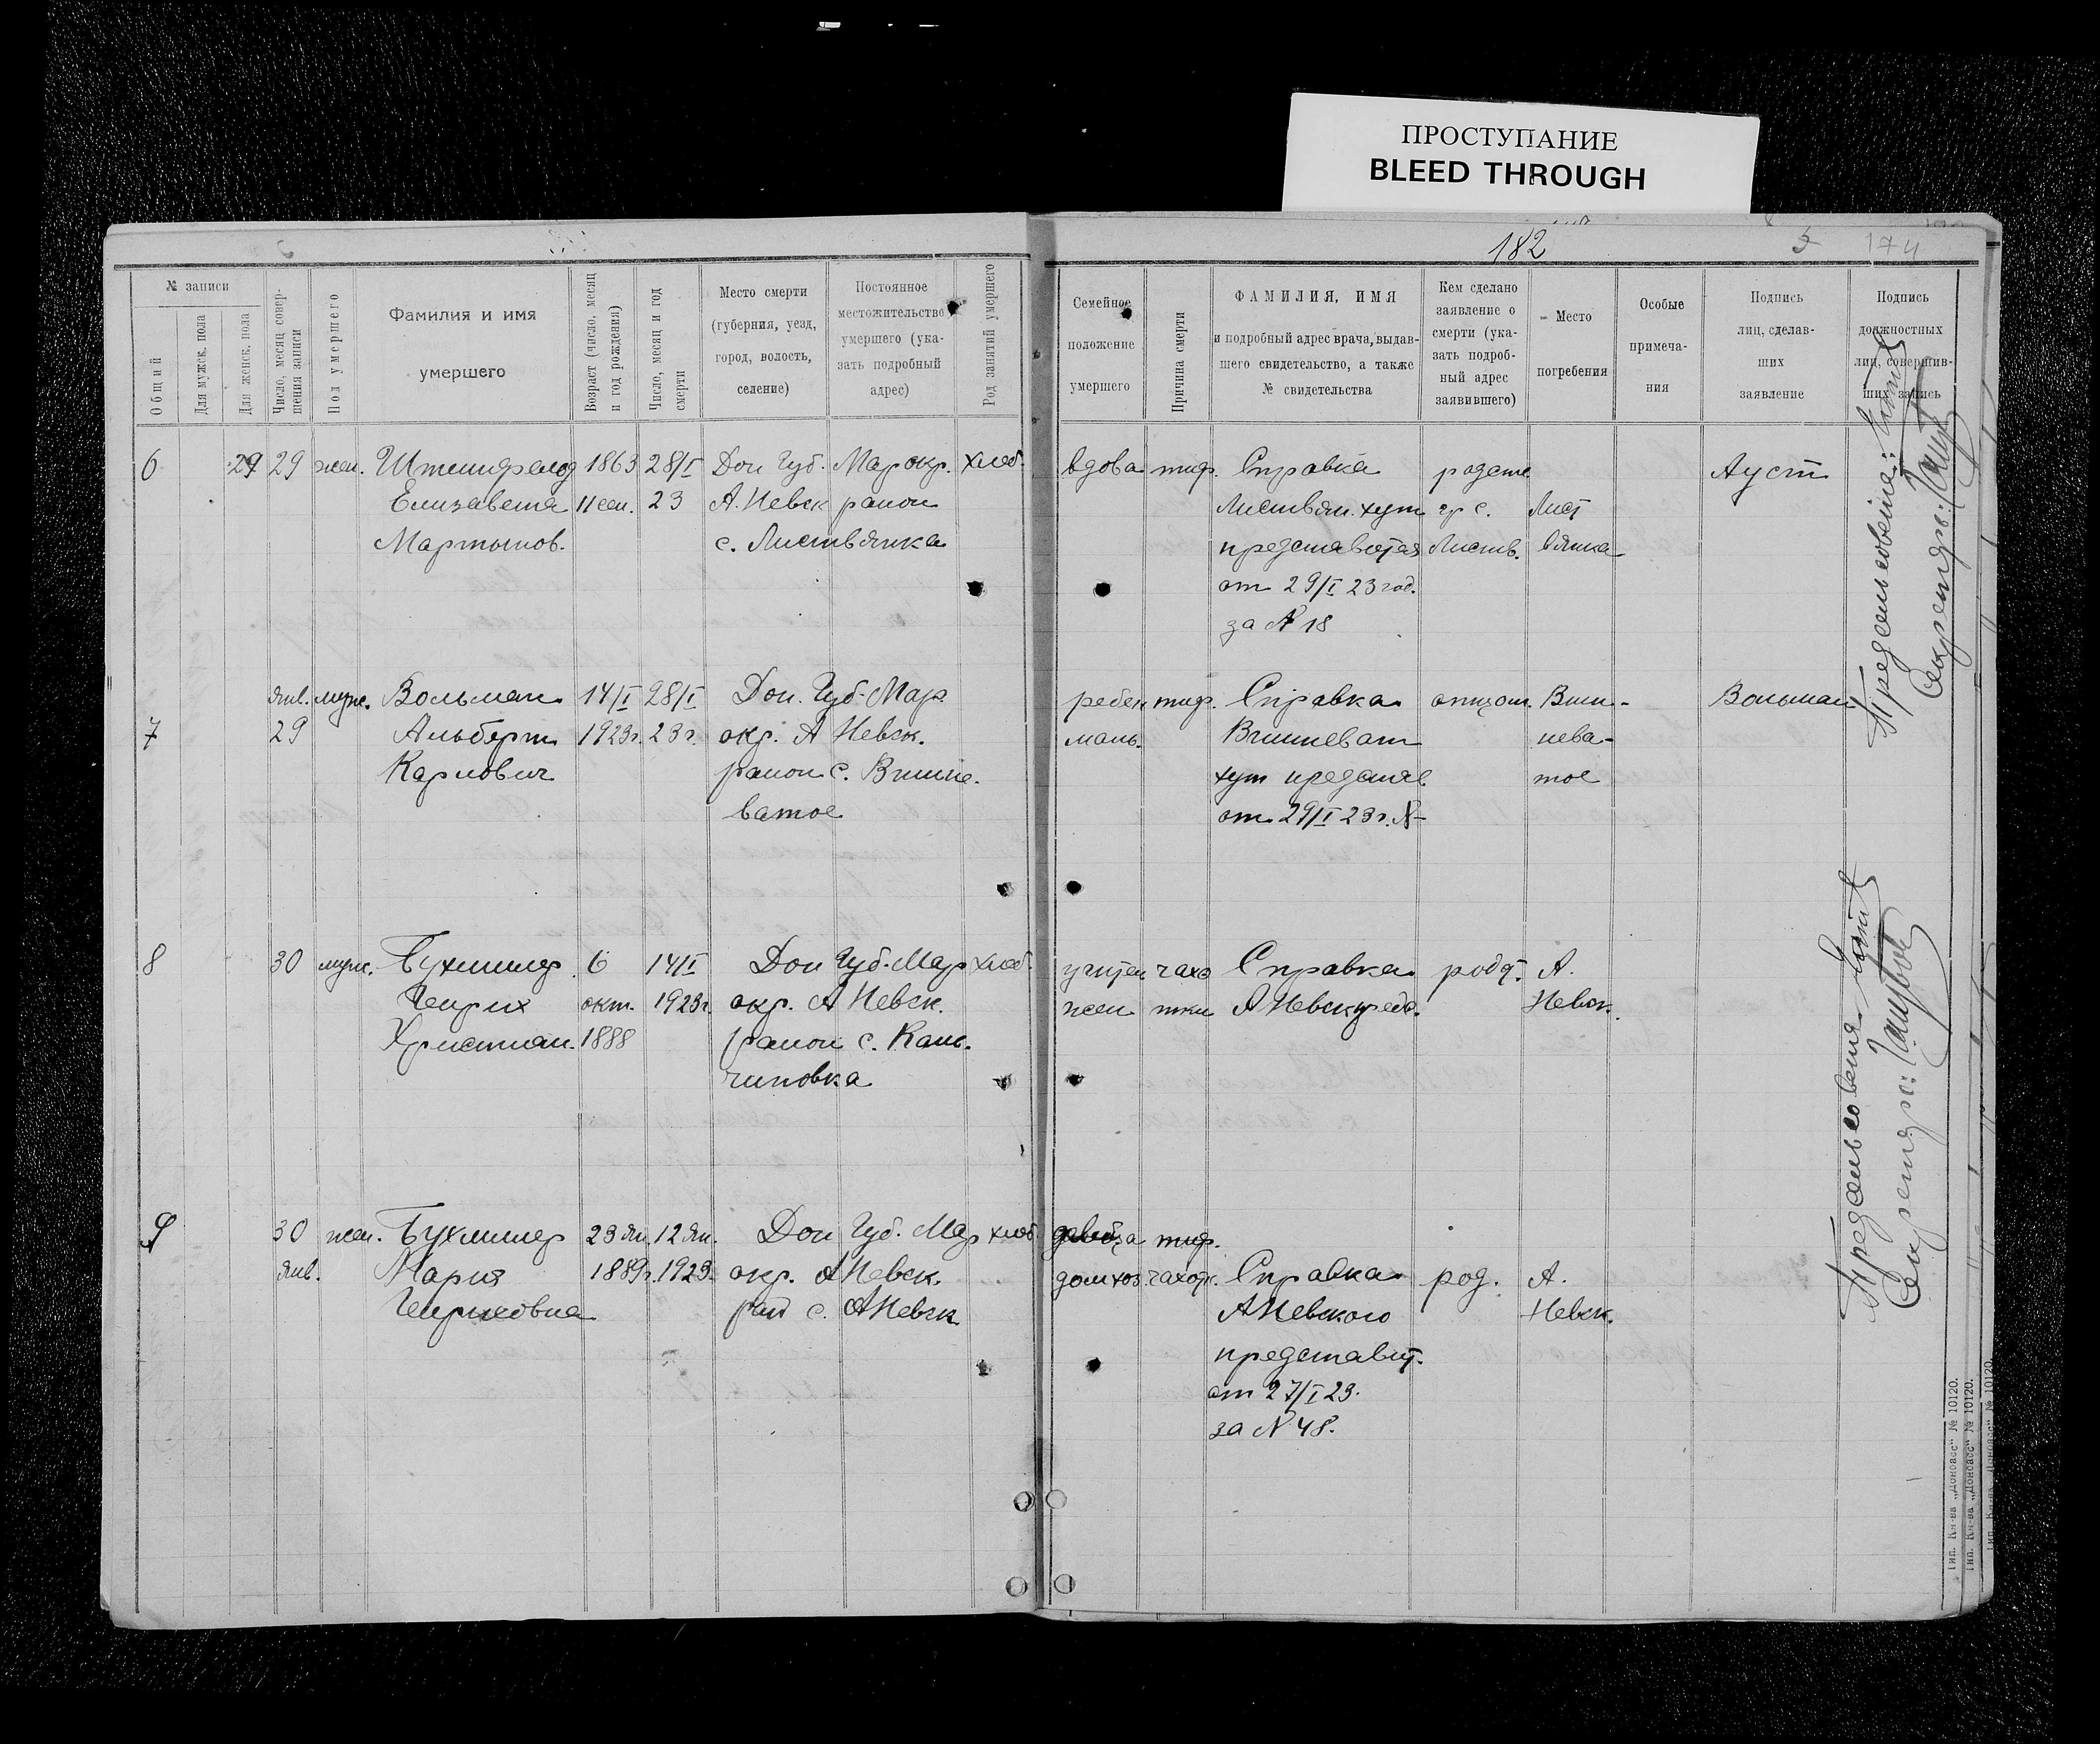 ПРОСТУПАНИЕ
BLEED THROUGH
182
5
174
№ записи
Общий
Для мужск. пола
Для женск. пола
Число, месяц совер-
шения записи
Пол умершего
Фамилия и имя
умершего
Возраст (число, месяц
и год рождения)
Число, месяц и год
смерти
Место смерти
(губерния, уезд,
город, волость,
селение)
Постоянное
местожительство
умершего (ука-
зать подробный
адрес)
Род занятий умершего
Семейное
положение
умершего
Причина смерти
ФАМИЛИЯ, ИМЯ
и подробный адрес врача, выдав-
шего свидетельство, а также
№ свидетельства
Кем сделано
заявление о
смерти (ука-
зать подроб-
ный адрес
заявившего)
Место
погребения
Особые
примеча-
ния
Подпись
лиц, сделав-
ших
заявление
Подпись
должностных
лиц, совершив-
ших запись
6 29 29 жен. 1863 28/I Дон Губ. Мар окр. хлеб.
Елизавета 11 сен. 23 А. Невск район
Мартынов. с. Листвянка
вдова тиф. Справка Ауст
Листвян. хут гр с. Лист
Листв. вянка
от 29/I 23 год.
за № 18
янв. муж. Вольман 14/I 28/I Дон. Губ. Мар.
7 29 Альберт 1923г. 23г. окр. А Невск.
Карлович район с. Вишне.
ватое
ребен. тиф. Справка отцом. Виш- Вольман
маль. Вишневат нева-
хут представ тое
от 29/I 23г. №-
8 30 муж. Бухмиллер 6 14/I Дон Губ. Мар хлеб.
Генрих окт. 1923г. окр. А Невск.
Христиан. 1888 район с. Кань.
чиновка
чахо Справка род А.
жен тки А Невск Невск.
9 30 жен. Бухмиллер 23 Ян. 12 Ян. Дон Губ. Мар хлеб.
янв. Мария 1889г. 1923. окр. А Невск.
Генриховна рай с. А Невск
тиф.
домхоз. чахот. Справка род. А.
А Невского Невск.
представит.
от 27/I 23.
за № 48.
Секретарь:
Секретарь:
Тип. Кн-ва „Донбасс“ № 10120.
Тип. Кн-ва „Донбасс“ № 10120.
Тип. Кн-ва „Донбасс“ № 10120.